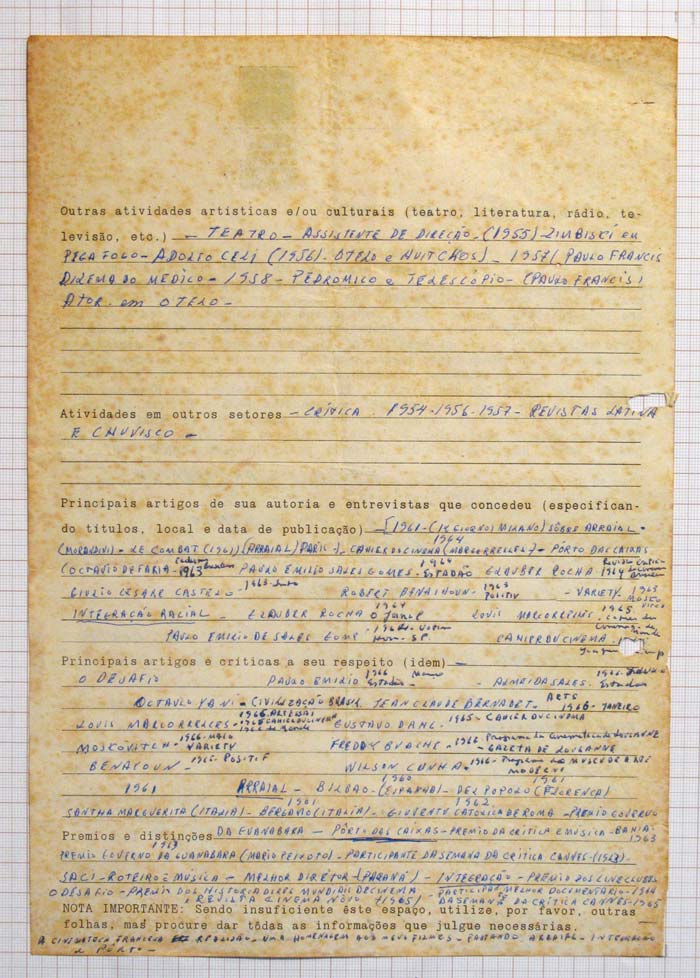 Outras atividades artísticas e/ou culturais (teatro, literatura, rádio, te-
levisão, etc.) — TEATRO — ASSISTENTE DE DIREÇÃO — (1955) ZIMBISKI em
PEGA FOGO — ADOLFO CELI (1956) - OTELO e HUIT CHOS) — 1957 ( PAULO FRANCIS
DILEMA DO MEDICO — 1958 — PEDROMICO e TELESCÓPIO — (PAULO FRANCIS)
ATOR em OTELO —
Atividades em outros setores — CRÍTICA 1954 - 1956 - 1957 — REVISTAS LATINA
E CHUVISCO —
Principais artigos de sua autoria e entrevistas que concedeu (especifican-
do títulos, local e data de publicação) — [1961 - (IL GIORNO) MILANO) SÔBRE ARRAIAL -
(MORANDINI) - LE COMBAT (1961) (ARRAIAL) PARIS) - 1964 CAHIER DU CINEMA (MARCORRELLES) - PÔRTO DAS CAIXAS
(OCTAVIO DE FARIA - 1963 PAULO EMILIO SALES GOMES - 1964 ESTADÃO GLAUBER ROCHA 1964
GIULIO CESARE CASTELO - 1963 ROBERT BENAIHOUN - 1963 POSITIV — VARIETY 1963
INTEGRAÇÃO RACIAL — GLAUBER ROCHA 1964 O LOUIS MARCORRELLES 1965
PAULO EMILIO DE SALES GOMES - SP. CAHIER DU CINEMA
Principais artigos e críticas a seu respeito (idem) —
O DESAFIO PAULO EMILIO 1966 — ALMEIDA SALES - 1966 Estadão
OCTAVIO YANI — CIVILIZAÇÃO BRASIL JEAN CLAUDE BERNADET - ARTS 1966 - JANEIRO
LOUIS MARCORRELLES - 1966 GUSTAVO DAHL - 1965 - CAHIER DU CINEMA
MOSKOVITCH - 1966 - MAIO VARIETY FREDDY BUACHE - 1966 Programa da Cinemateca de LOUSANNE - GAZETA DE LOUSANNE
BENAYOUN - 1966 - POSITIF WILSON CUNHA - 1966 - Programa do MUSEU DE ARTE MODERNA
1961 ARRAIAL — BILBAO - 1960 (ESPANHA) - DEL POPOLO 1961 (FLORENÇA)
SANTHA MARGUERITA (ITALIA) - BERGAMO 1961 (ITALIA) - GIUVENTU CATOLICA DE ROMA 1962 — PREMIO GOVERNO
Premios e distinções DA GUANABARA — PÔRTO DAS CAIXAS - PREMIO DA CRITICA E MUSICA - BAHIA - 1963
PREMIO GOVERNO 1963 DA GUANABARA (MARIO PEIXOTO) - PARTICIPANTE DA SEMANA DA CRITICA CANNES -
SACI - ROTEIRO E MUSICA — MELHOR DIRETOR (PARANÁ) — INTEGRAÇÃO — PREMIO DOS CINECLUBES
O DESAFIO - PREMIO DOS HISTORIADORES MUNDIAIS DE CINEMA - MELHOR DOCUMENTARIO - 1964
, REVISTA CINEMA NÔVO (1965) DA SEMANA DA CRÍTICA CANNES - 1965
NOTA IMPORTANTE: Sendo insuficiente êste espaço, utilize, por favor, outras
folhas, mas procure dar tôdas as informações que julgue necessárias.
A CINEMATECA FRANCESA REALIZOU UMA HOMENAGEM AOS MEUS FILMES - PASSANDO ARRAIAL - INTEGRAÇÃO
e PÔRTO —